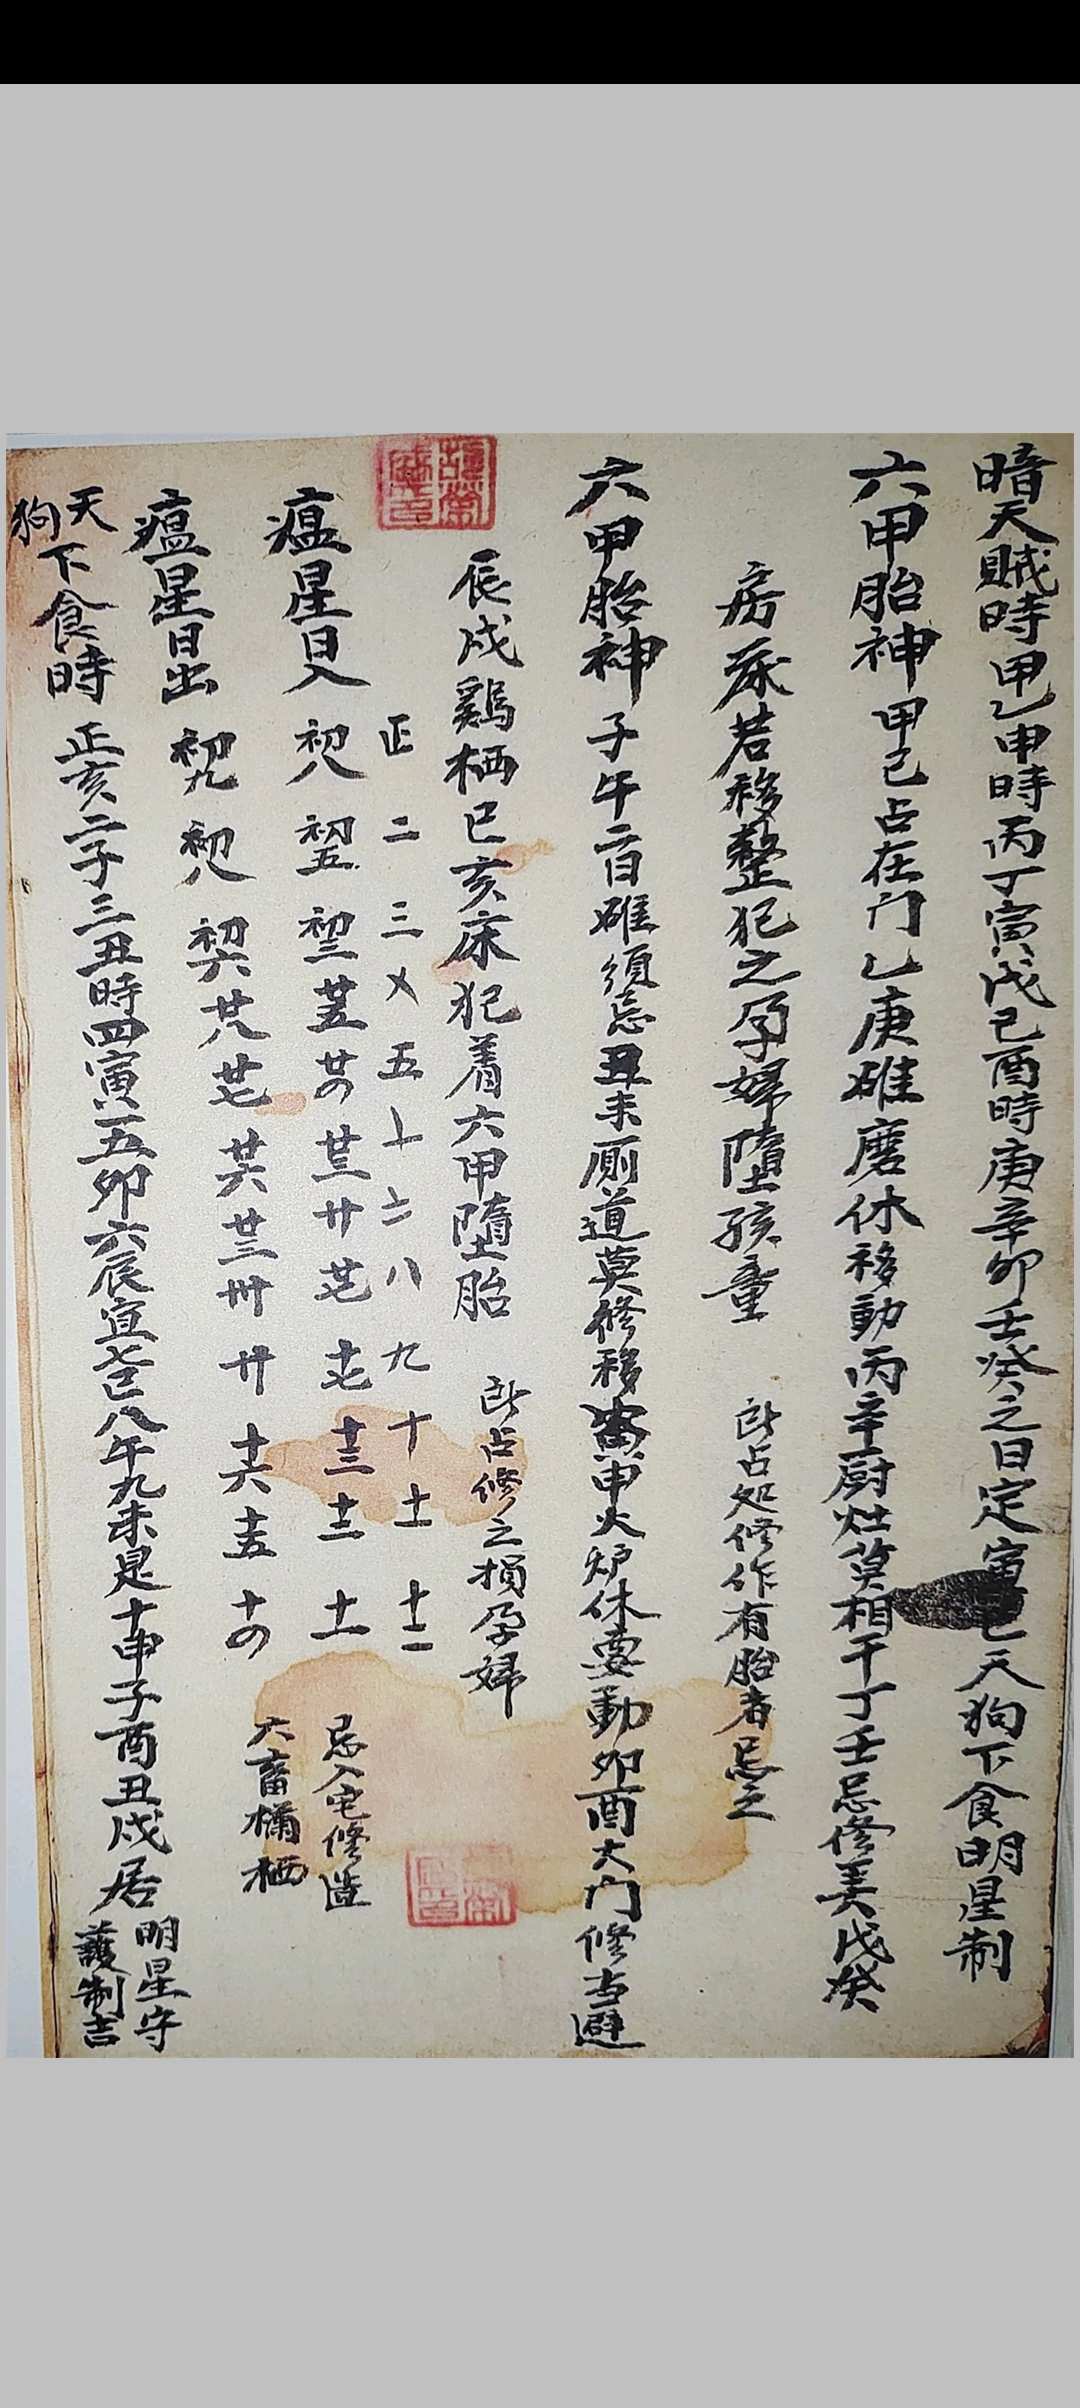 暗天賊時甲乙申時丙丁寅戊己酉時庚辛卯壬癸之日定寅巳天狗下食明星制
六甲胎神甲己占在门乙庚碓磨休移動丙辛厨灶莫相干丁壬忌修美戊癸
房床若移整犯之孕婦墮孩童 此占处修作有胎者忌之
六甲胎神子午二日碓須忌丑未厕道莫修移寅申火炉休要動卯酉大门修当避
辰戌雞栖巳亥床犯着六甲墮胎 此占修之損孕婦
正 二 三 〤 五 〦 六 八 九 十 十一 十二
瘟星日入 初八 初五 初三 廿五 廿〤 廿三 廿 廿七 十七 十三 十二 十一 忌入宅修造
瘟星日出 初九 初八 初六 廿八 廿七 廿六 廿三 卅 廿 十六 十五 十〤 六畜栖
天狗下食時 正亥二子三丑時四寅五卯六辰宜七巳八午九未是十申子酉丑戌居 明星守護制吉